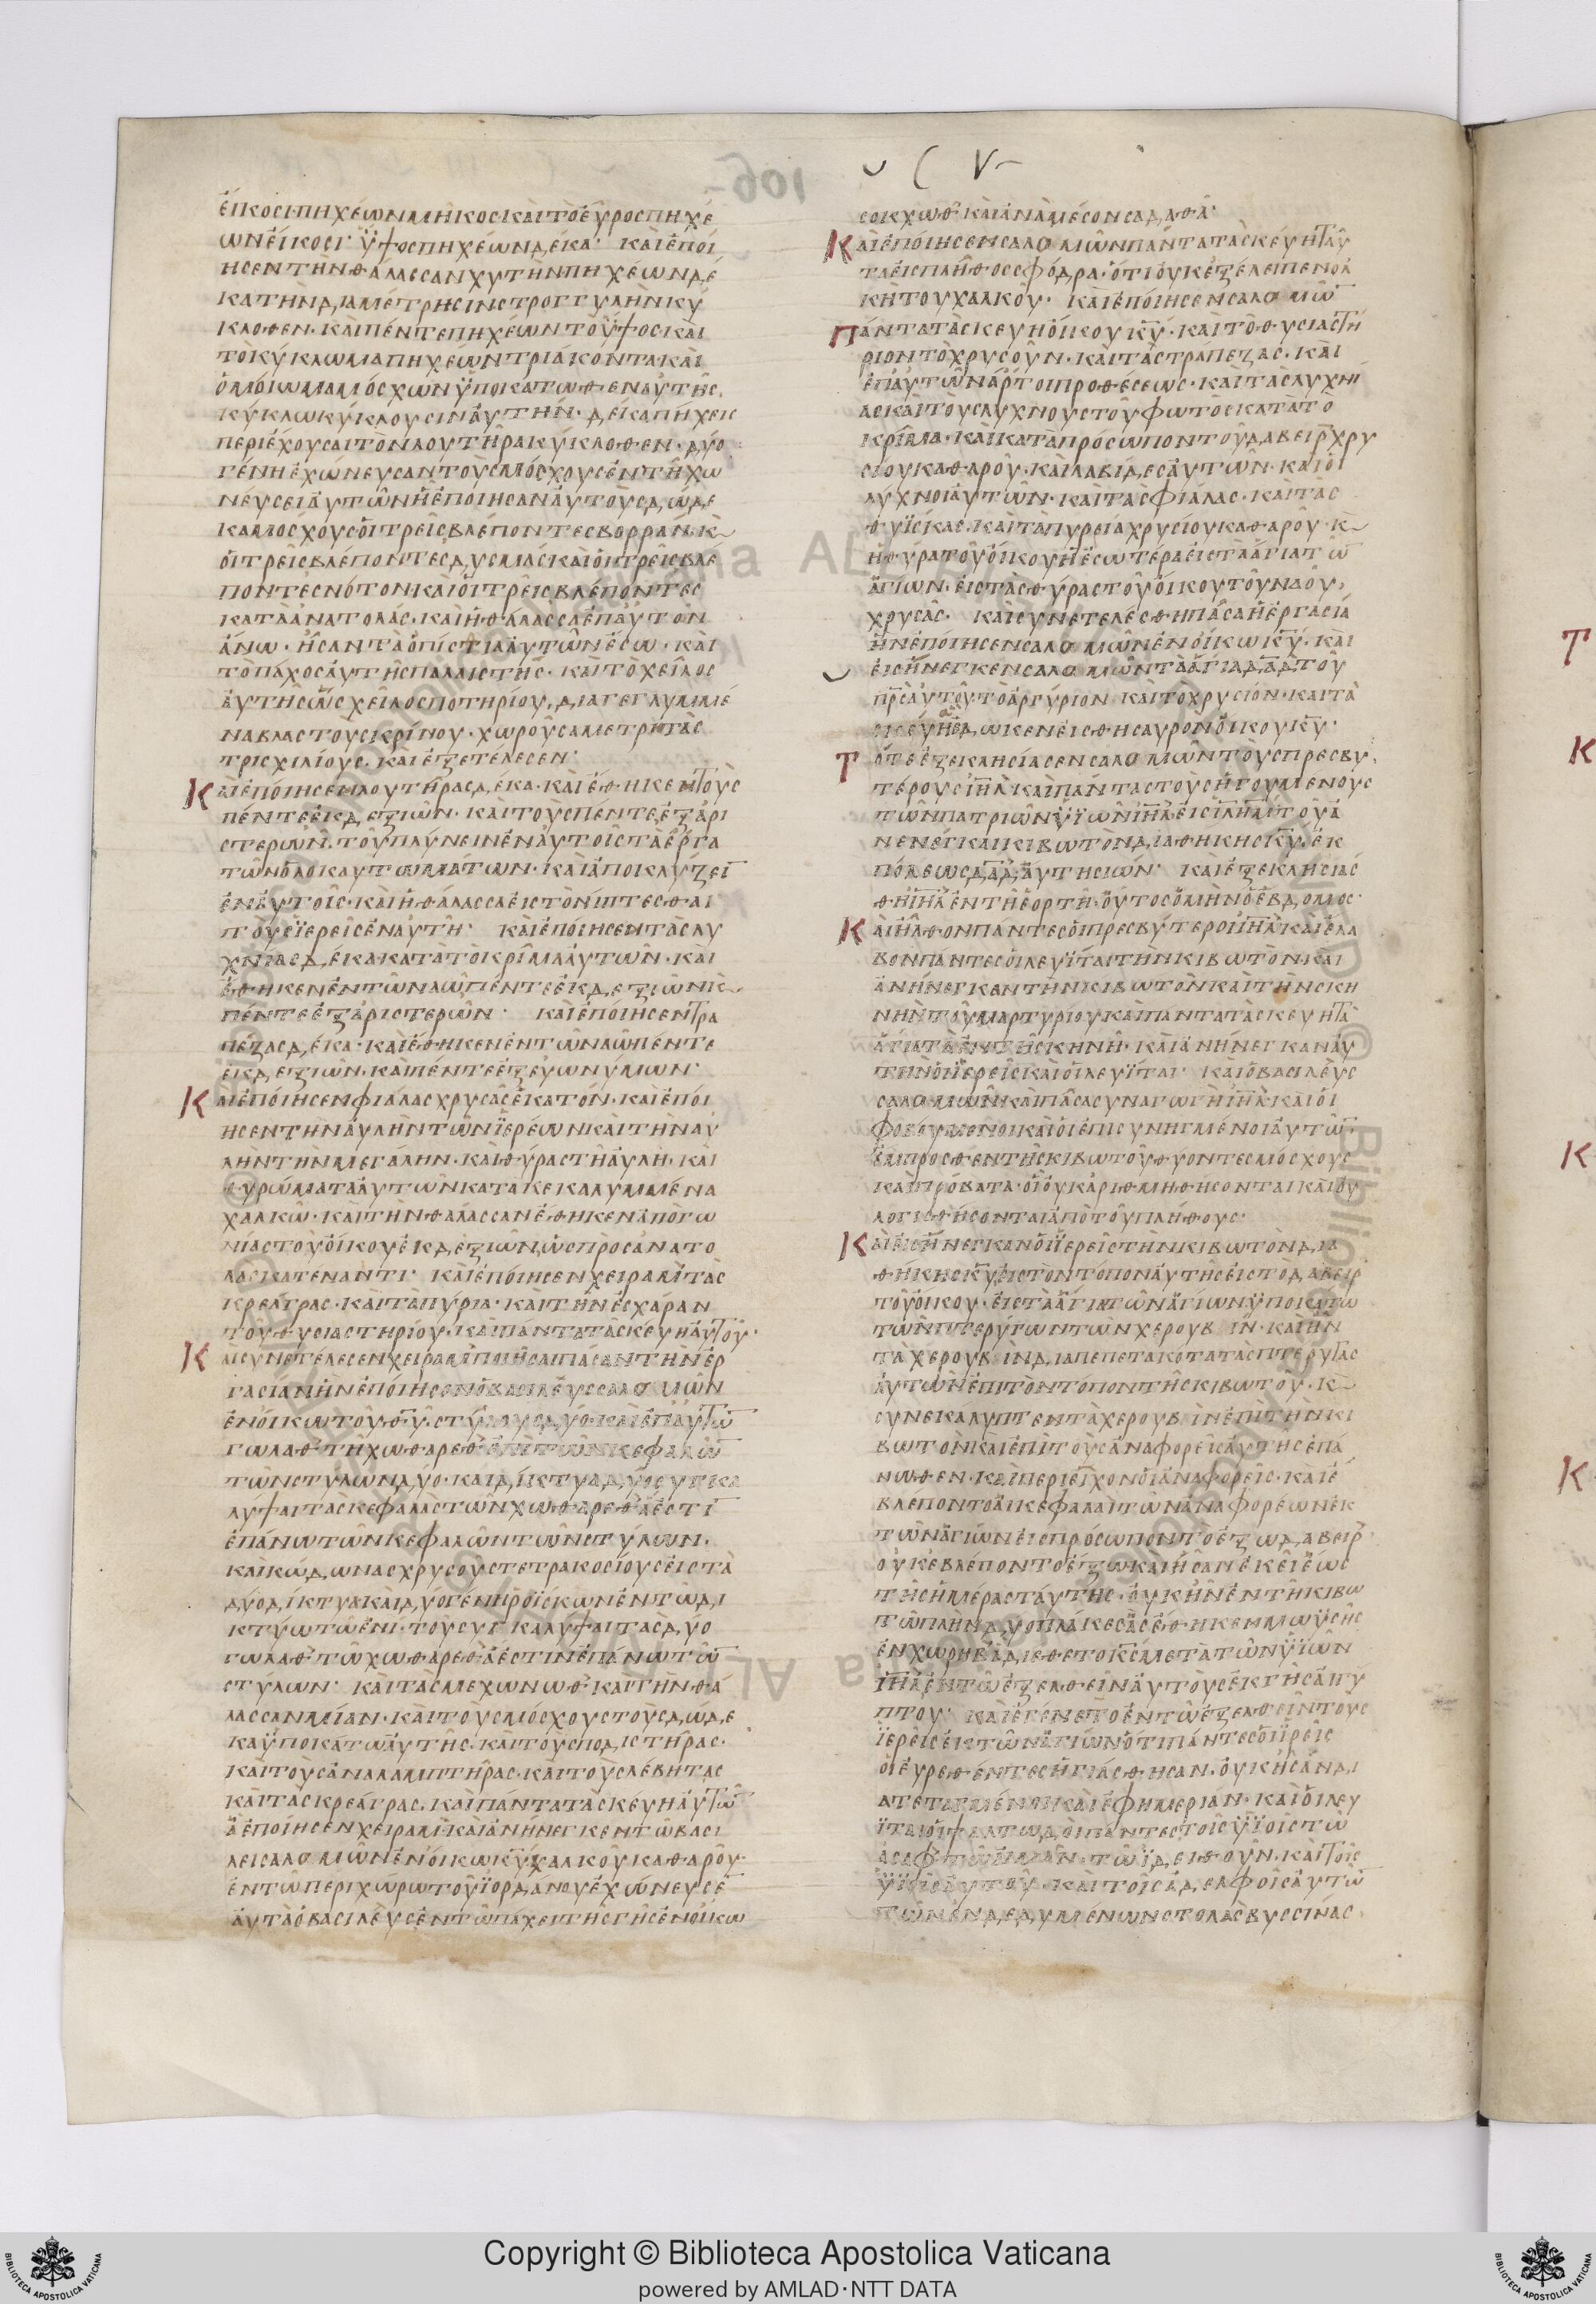 εἴκοσι πηχέων μῆκος καὶ τὸ εὖρος πηχέ
ων εἴκοσι· ὕψος πηχέων δέκα· καὶ ἐποί
ησεν τὴν θάλασσαν χυτὴν πηχέων δέ
κα τὴν διαμέτρησιν στρογγύλην κύ
κλοθεν· καὶ πέντε πηχέων τὸ ὕψος καὶ
τὸ κύκλωμα πηχέων τριάκοντα καὶ
ὁμοίωμα μόσχων ὑποκάτωθεν αὐτῆς
κύκλω κυκλοῦσιν αὐτήν· δέκα πήχεις
περιέχουσαι τὸν λουτῆρα κύκλοθεν· δύο
γένη ἐχώνευσαν τοὺς μόσχους ἐν τῆ χω
νεύσει αὐτῶν ἧ ἐποίησαν αὐτοὺς δώδε
κα μόσχους οἱ τρεῖς βλέποντες βορρᾶν· κ
οἱ τρεῖς βλέποντες δυσμὰς καὶ οἱ τρεῖς βλέ
ποντες νότον καὶ οἱ τρεῖς βλέποντες
κατὰ ἀνατολάς· καὶ ἡ θάλασσα ἐπ' αὐτὸν
ἄνω· ἦσαν τὰ ὀπίστια αὐτῶν ἔσω· καὶ
τὸ πάχος αὐτῆς παλαιστῆς· καὶ τὸ χεῖλος
αὐτῆς ὡς χεῖλος ποτηρίου, διαγεγλυμμέ
να βλαστοὺς κρίνου· χωροῦσα μετρητὰς
τρισχιλίους. καὶ ἐξετέλεσεν·
Καὶ ἐποίησεν λουτῆρας δέκα· καὶ ἔθηκεν τοὺς
πέντε ἐκ δεξιῶν· καὶ τοὺς πέντε ἐξ ἀρι
στερῶν· τοῦ πλύνειν ἐν αὐτοῖς τὰ ἔργα
τῶν ὁλοκαυτωμάτων· καὶ ἀποκλύζει
ἐν αὐτοῖς· καὶ ἡ θάλασσα εἰς τὸ νίπτεσθαι
τοὺς ἱερεῖς ἐν αὐτῆ· καὶ ἐποίησεν τὰς λυ
χνίας δέκα κατὰ τὸ κρίμα αὐτῶν· καὶ
ἔθηκεν ἐν τῶ ναῶ πέντε ἐκ δεξιῶν κ
πέντε ἐξ ἀριστερῶν· καὶ ἐποίησεν τρα
πέζας δέκα· καὶ ἔθηκεν ἐν τῶ ναῶ πέντε
ἐκ δεξιῶν· καὶ πέντε ἐξ εὐωνύμων·
Καὶ ἐποίησεν φιάλας χρυσᾶς ἑκατόν· καὶ ἐποί
ησεν τὴν αὐλὴν τῶν ἱερέων καὶ τὴν αὐ
λὴν τὴν μεγάλην· καὶ θύρας τῆ αὐλῆ· καὶ
θυρώματα αὐτῶν κατακεκαλυμμένα
χαλκῶ· καὶ τὴν θάλασσαν ἔθηκεν ἀπὸ γω
νίας τοῦ οἴκου ἐκ δεξιῶν ὡς πρὸς ἀνατο
λὰς κατέναντι· καὶ ἐποίησεν χειραμ τὰς
κρεάγρας· καὶ τὰ πύρια· καὶ τὴν ἐσχάραν
τοῦ θυσιαστηρίου· καὶ πάντα τὰ σκεύη αὐτοῦ·
Καὶ συνετέλεσεν χειραμ ποιῆσαι πᾶσαν τὴν ἐρ
γασίαν ἣν ἐποίησεν ὁ βασιλεὺς σαλομὼν
ἐν οἴκω τοῦ θυ· στύλους δύο· καὶ ἐπ' αὐτῶ
γωλαθ τῆ χωθαρεθ ἐπὶ τῶν κεφαλῶ
τῶν στύλων δύο· καὶ δίκτυα δύο συγκα
λύψαι τὰς κεφαλὰς τῶν χωθαρεθ ἅ ἐστι
ἐπάνω τῶν κεφαλῶν τῶν στύλων·
καὶ κώδωνας χρυσοῦς τετρακοσίους εἰς τὰ
δύο δίκτυα καὶ δύο γένη ῥοΐσκων ἐν τῶ δι
κτύω τῶ ἑνί· τοῦ συγκαλύψαι τὰς δύο
γωλαθ τῶ χωθαρεθ ἅ ἐστιν ἐπάνω τῶ
στύλων· καὶ τὰς μεχωνωθ· καὶ τὴν θά
λασσαν μίαν· καὶ τοὺς μόσχους τοὺς δώδε
κα ὑποκάτω αὐτῆς· καὶ τοὺς ποδιστῆρας·
καὶ τοὺς ἀναλαμπτῆρας· καὶ τοὺς λέβητας
καὶ τὰς κρεάγρας. καὶ πάντα τὰ σκεύη αὐτῶ
ἃ ἐποίησεν χειραμ· καὶ ἀνήνεγκεν τῶ βασι
λεῖ σαλομὼν ἐν οἴκω κυ χαλκοῦ καθαροῦ·
ἐν τῶ περιχώρω τοῦ ἰορδάνου ἐχώνευσε
αὐτὰ ὁ βασιλεὺς ἐν τῶ πάχει τῆς γῆς ἐν οἴκω
σοκχωθ· καὶ ἀνὰ μέσον σαδαθα·
Καὶ ἐποίησεν σαλομὼν πάντα τὰ σκεύη ταῦ
τα εἰς πλῆθος σφόδρα· ὅτι οὐκ ἐξέλειπεν ὁλ
κὴ τοῦ χαλκοῦ· καὶ ἐποίησεν σαλομὼ
πάντα τὰ σκεύη οἴκου κυ· καὶ τὸ θυσιαστή
ριον τὸ χρυσοῦν· καὶ τὰς τραπέζας· καὶ
ἐπ' αὐτῶν ἄρτοι προθέσεως· καὶ τὰς λυχνι
ας καὶ τοὺς λύχνους τοῦ φωτὸς κατὰ τὸ
κρίμα· καὶ κατὰ πρόσωπον τοῦ δαβειρ χρυ
σίου καθαροῦ· καὶ λαβίδες αὐτῶν· καὶ οἱ
λύχνοι αὐτῶν· καὶ τὰς φιάλας· καὶ τὰς
θυΐσκας. καὶ τὰ πυρεῖα χρυσίου καθαροῦ· κ
ἡ θύρα τοῦ οἴκου ἡ ἐσωτέρα εἰς τὰ ἅγια τῶ
ἁγίων· εἰς τὰς θύρας τοῦ οἴκου τοῦ ναοῦ,
χρυσᾶς· καὶ συνετελέσθη πᾶσα ἡ ἐργασία
ἣν ἐποίησεν σαλομὼν ἐν οἴκω κυ· καὶ
εἰσήνεγκεν σαλομὼν τὰ ἅγια δαδ τοῦ
πρς αὐτοῦ· τὸ ἀργύριον· καὶ τὸ χρυσίον· καὶ τὰ
σκεύη ἔδωκεν εἰς θησαυρὸν οἴκου κυ·
Τότε ἐξεκλησίασεν σαλομὼν τοὺς πρεσβυ
τέρους ιηλ καὶ πάντας τοὺς ἡγουμένους
τῶν πατριῶν υἱῶν ιηλ εἰς ιλημ τοῦ ἀ
νενέγκαι κιβωτὸν διαθήκης κυ ἐκ
πόλεως δαδ, αὕτη σιών· καὶ ἐξεκλησιάσ
θη ιηλ ἐν τῆ ἑορτῆ· οὗτος ὁ μὴν ὁ ἕβδομος·
Καὶ ἦλθον πάντες οἱ πρεσβύτεροι ιηλ καὶ ἔλα
βον πάντες οἱ λευῖται τὴν κιβωτὸν· καὶ
ἀνήνεγκαν τὴν κιβωτὸν καὶ τὴν σκη
νὴν τοῦ μαρτυρίου καὶ πάντα τὰ σκεύη τὰ
ἅγια τὰ ἐν τῆ σκηνῆ· καὶ ἀνήνεγκαν αὐ
τὴν οἱ ἱερεῖς καὶ οἱ λευῖται· καὶ ὁ βασιλεὺς
σαλομὼν καὶ πᾶσα συναγωγὴ ιηλ· καὶ οἱ
φοβούμενοι καὶ οἱ ἐπισυνηγμένοι αὐτῶ
ἔμπροσθεν τῆς κιβωτοῦ θύοντες μόσχους
καὶ πρόβατα· οἳ οὐκ ἀριθμηθήσονται καὶ οὐ
λογισθήσονται ἀπὸ τοῦ πλήθους·
Καὶ εἰσήνεγκαν οἱ ἱερεῖς τὴν κιβωτὸν δια
θήκης κυ εἰς τὸν τόπον αὐτῆς εἰς τὸ δαβειρ
τοῦ οἴκου· εἰς τὰ ἅγια τῶν ἁγίων ὑποκάτω
τῶν πτερύγων τῶν χερουβιν· καὶ ἦν
τὰ χερουβιν διαπεπετακότα τὰς πτέρυγας
αὐτῶν ἐπὶ τὸν τόπον τῆς κιβωτοῦ· κ
συνεκάλυπτεν τὰ χερουβιν ἐπὶ τὴν κι
βωτὸν καὶ ἐπὶ τοὺς ἀναφορεῖς αὐτῆς ἐπά
νωθεν· καὶ περιεῖχον οἱ ἀναφορεῖς· καὶ ἐ
βλέποντο αἱ κεφαλαὶ τῶν ἀναφορέων ἐκ
τῶν ἁγίων εἰς πρόσωπον τὸ ἔξω δαβειρ·
οὐκ ἐβλέποντο ἔξω καὶ ἦσαν ἐκεῖ ἕως
τῆς ἡμέρας ταύτης· οὐκ ἦν ἐν τῆ κιβω
τῶ πλὴν δύο πλάκες ἃς ἔθηκεν μωυσῆς
ἐν χωρηβ ἃ διέθετο κς μετὰ τῶν υἱῶν
ιηλ ἐν τῶ ἐξελθεῖν αὐτοὺς ἐκ γῆς αἰγύ
πτου· καὶ ἐγένετο ἐν τῶ ἐξελθεῖν τοὺς
ἱερεῖς ἐκ τῶν ἁγίων ὅτι πάντες οἱ ἱρεῖς
οἱ εὑρεθέντες ἡγιάσθησαν. οὐκ ἦσαν δι
ατεταγμένοι κατ' ἐφημερίαν· καὶ οἱ λευ
ῖται οἱ ψαλτωδοὶ πάντες τοῖς υἱοῖς τῶ
ασαφ τῶ αιμαν· τῶ ϊδειθουν. καὶ τοῖς
υἱοῖς αὐτοῦ· καὶ τοῖς ἀδελφοῖς αὐτῶ
τῶν ἐνδεδυμένων στολὰς βυσσίνας·
Copyright © Biblioteca Apostolica Vaticana
powered by AMLAD·NTT DATA